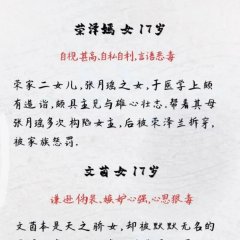 荣泽嫣 女 17岁
自视甚高,自私自利,言语恶毒
荣家二女儿,张月瑶之女,于医学上颇
有造诣,颇具主见与雄心壮志。帮着其母
张月瑶多次构陷女主,后被荣泽兰拆穿,
被家族惩罚。
文茵 女 17岁
谦逊伪装、嫉妒心强、心思狠毒
文茵本是天之骄女,却被默默无名的